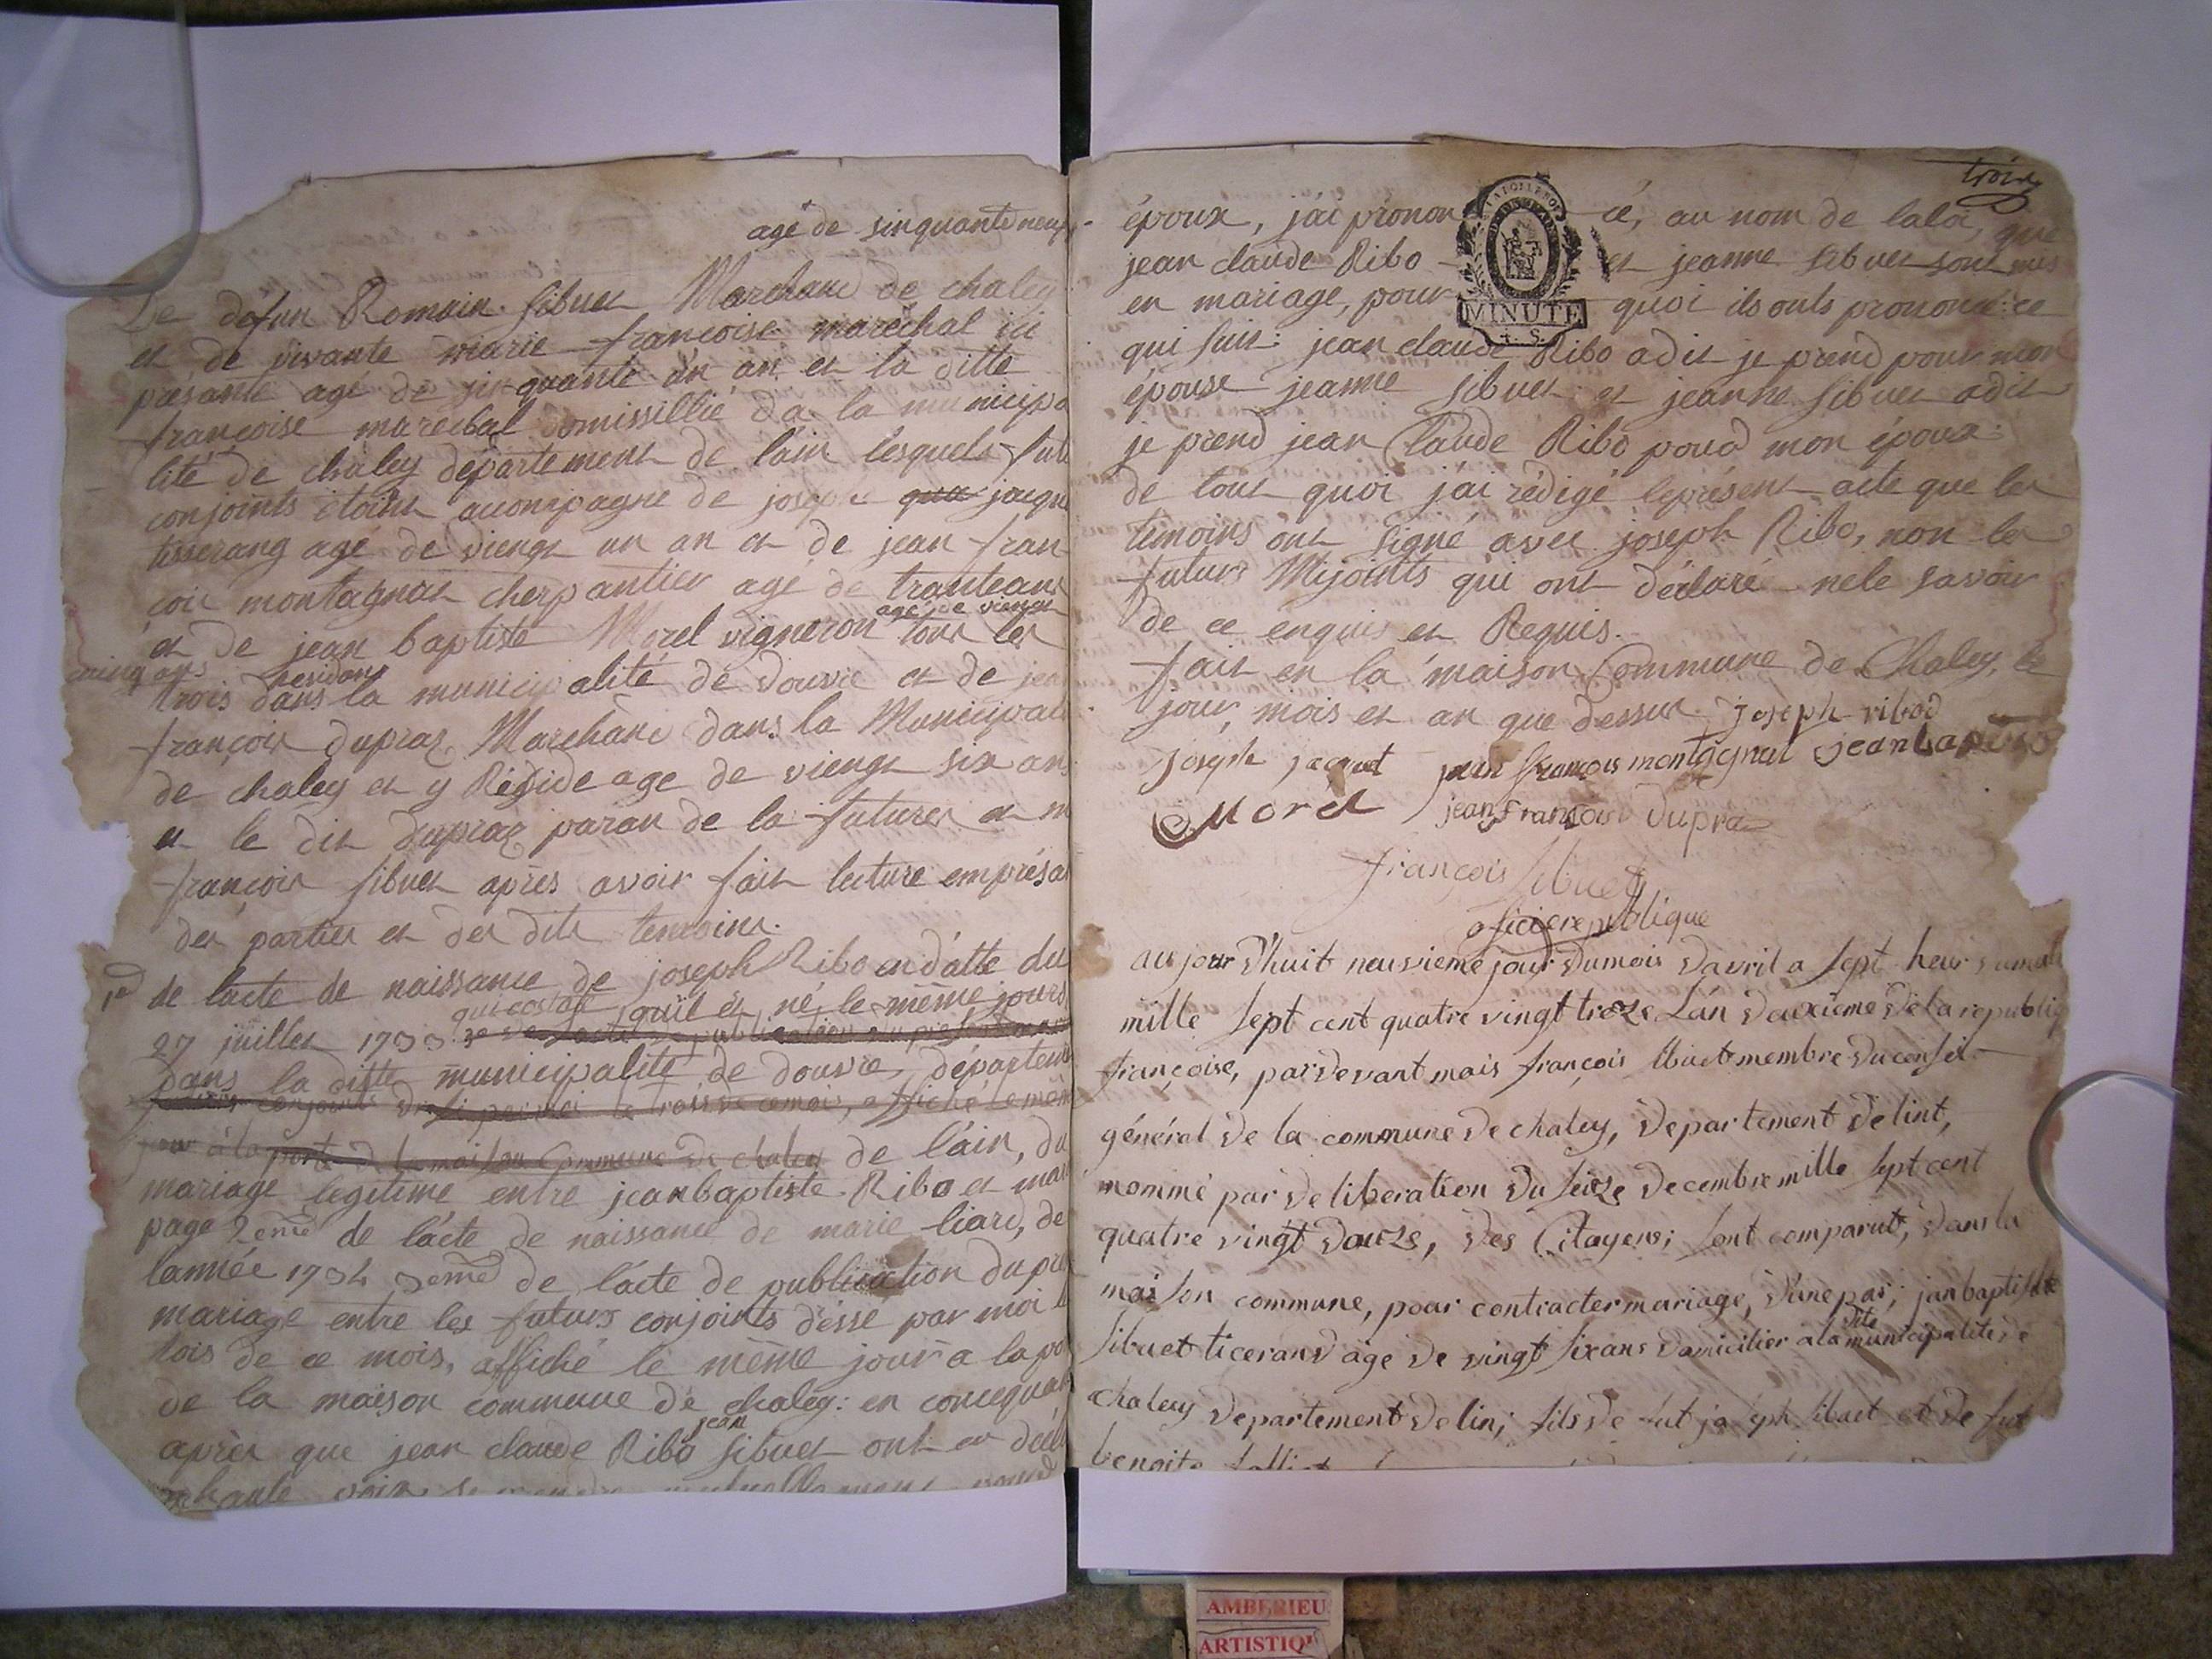 agé de sinquante neuf
De défun Romain Sibuet Marchand de chaley
et de vivante marie françoise maréchal ici
présante agé de sinquante un an et la ditte
françoise maréchal domissillié da la municipa
lité de chaley département de l'ain lesquels futu
conjoints étoint acompagné de joseph jaque
tisserang agé de viengt un an et de jean fran
çois montagnat cherpantier agé de tranteans
agé de viengt
et de jean baptiste Morel vigneron tous les
cinq ans residans
trois dans la municipalité de douvre et de jea
françois dupraz Marchand dans la Municipali
de chaley et y Réside age de viengt six ans
et le dit dupraz paran de la future et m
françois sibuet après avoir fait lecture em présa
des parties et des dits temoins.
1er de lacte de naissance de joseph Ribo en datte du
qui costate qu'il et né le même jours
27 juillet 1733
dans la ditte municipalité de douvre, départem
futurs conjoints par moi le trois de ce mois, affiché le mêm
jour à la porte de la maison Commune de chaley de l'ain, du
mariage legitime entre jean baptiste Ribo et mar
page 2eme de l'acte de naissance de marie liard, de
lannée 1734 3eme de l'acte de publication du pre
mariage entre les futurs conjoints désse par moi l
tois de ce mois, affiché le même jour a la po
de la maison commune de chaley: en concequan
jean
après que jean claude Ribo sibuet ont eu décl
a haute voix se prendre mutuellement pour
troix
époux, j'ai pronon cé, au nom de laloi, que
jean claude Ribo et jeanne sibuet sont unis
en mariage, pour quoi ils onts prononcé ce
MINUTE
qui suit: jean claude Ribo adit je prend pour mon
épouse jeanne sibuet et jeanne sibuet adit
je prend jean Claude Ribo pour mon époux
de tout quoi j'ai rédigé leprésent acte que les
temoins ont signé avec joseph Ribo, non les
futurs Mijoints qui ont déclaré nele savoir
de ce enquis et Requis.
fait en la maison Commune de Chaley, le
jour, mois et an que dessus. joseph ribod
joseph jaquet jean françois montagnat jean bapt
Morel jean françois Dupra
françois Sibuet
oficie republique
aujour d'huit neuvieme jour dumois davril a sept heur dumat
mille sept cent quatre vingt treze L'an deuxieme de la republiq
françoise, pardevant mais françois sibuet membre du conseil
général de la commune de chaley, departement delint,
nommé par deliberation du seize decembre mille sept cent
quatre vingt douze, des Citayens; sont comparut, dans la
maison commune, pour contracter mariage, d'une par; jan baptiste
dite
sibuet ticerand age de vingt six ans domicilier a la municipalité de
chaley departement delin; fils de fut joseph sibuet et de fut
benoite
AMBERIEU
ARTISTIQU